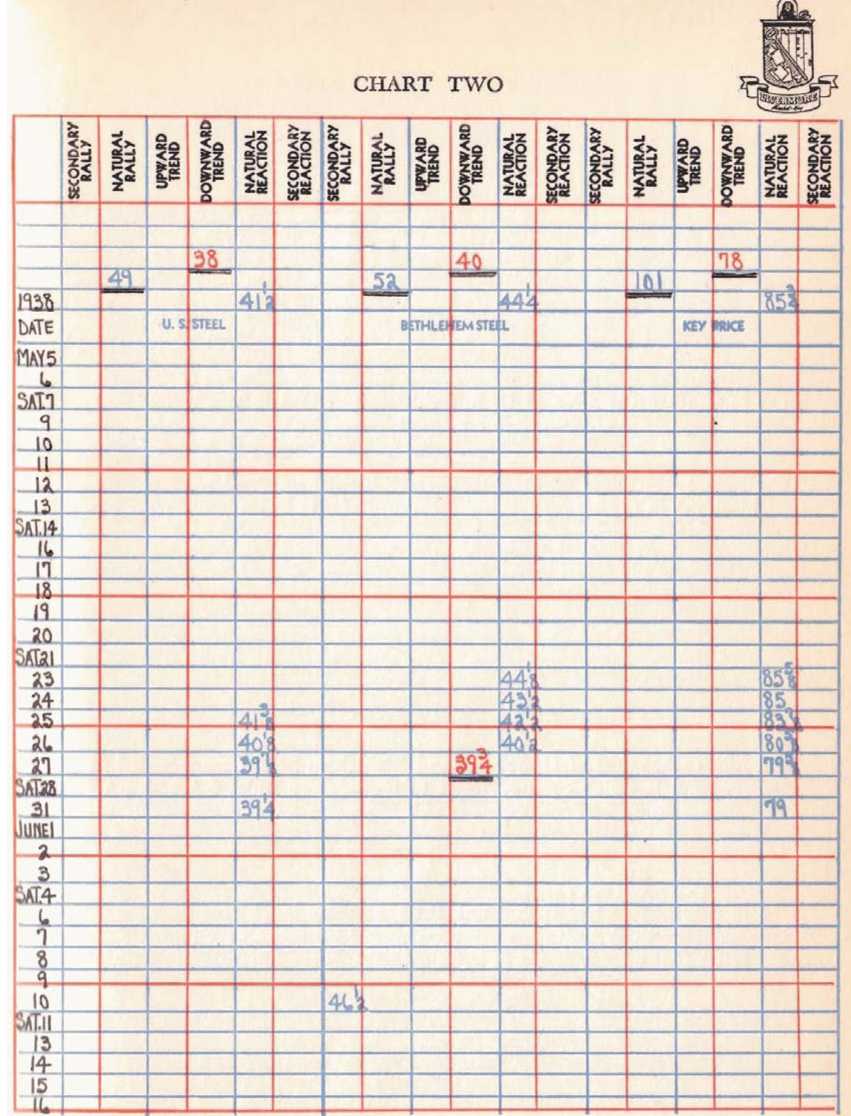 LIVERMORE
CHART TWO
SECONDARY RALLY NATURAL RALLY UPWARD TREND DOWNWARD TREND NATURAL REACTION SECONDARY REACTION SECONDARY RALLY NATURAL RALLY UPWARD TREND DOWNWARD TREND NATURAL REACTION SECONDARY REACTION SECONDARY RALLY NATURAL RALLY UPWARD TREND DOWNWARD TREND NATURAL REACTION SECONDARY REACTION
38 40 78
49 52 101
1938 41 1/2 44 1/4 85 3/4
DATE U. S. STEEL BETHLEHEM STEEL KEY PRICE
MAY 5
6
SAT.7
9
10
11
12
13
SAT.14
16
17
18
19
20
SAT.21
23 44 1/8 85 5/8
24 43 1/2 85
25 41 3/8 42 1/2 83 7/8
26 40 1/8 40 1/2 80 5/8
27 39 7/8 39 3/4
SAT.28
31 39 1/4 79
JUNE 1
2
3
SAT.4
6
7
8
9
10 46 1/2
SAT.11
13
14
15
16